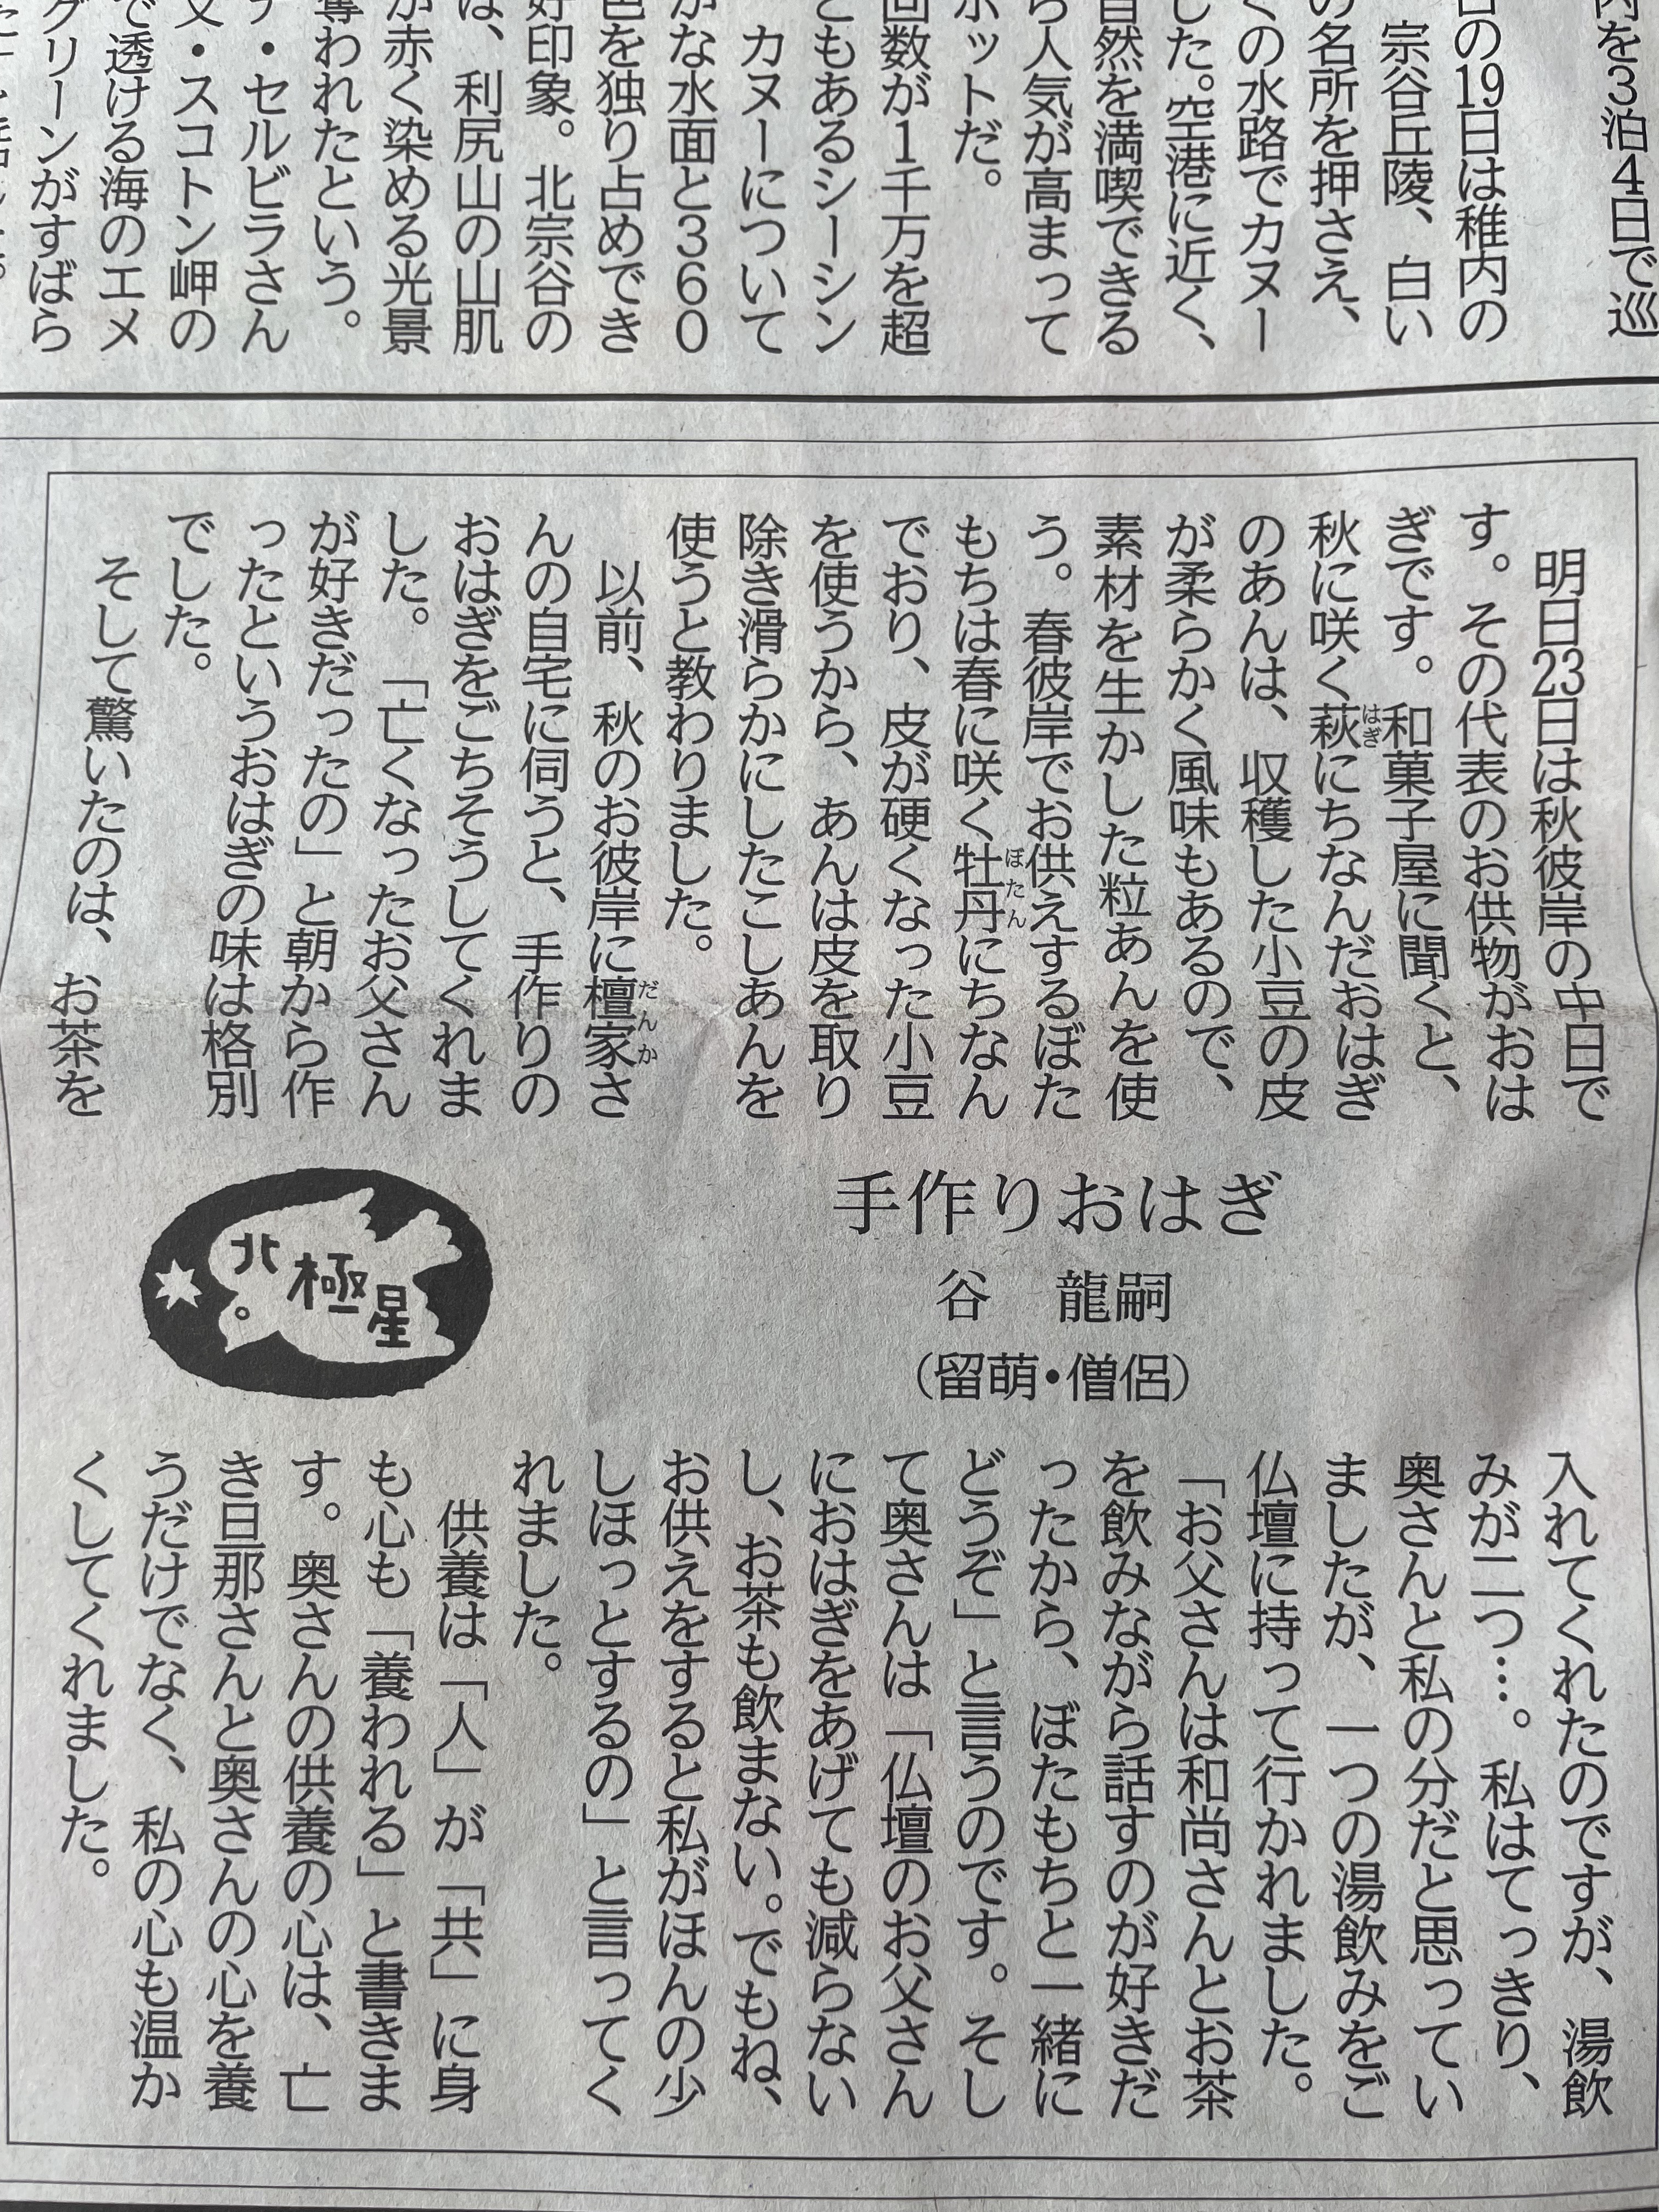 内を3泊4日で巡
日の19日は稚内の
宗谷丘陵、白い
の名所を押さえ、
くの水路でカヌー
した。空港に近く、
自然を満喫できる
ら人気が高まって
ポットだ。
回数が1千万を超
ともあるシーシン
カヌーについて
かな水面と360
色を独り占めでき
好印象。北宗谷の
は、利尻山の山肌
が赤く染める光景
奪われたという。
ナ・セルビラさん
文・スコトン岬の
で透ける海のエメ
グリーンがすばら
明日23日は秋彼岸の中日で
す。その代表のお供物がおは
ぎです。和菓子屋に聞くと、
秋に咲く萩にちなんだおはぎ
はぎ
のあんは、収穫した小豆の皮
が柔らかく風味もあるので、
素材を生かした粒あんを使
う。春彼岸でお供えするぼた
もちは春に咲く牡丹にちなん
ぼたん
でおり、皮が硬くなった小豆
を使うから、あんは皮を取り
除き滑らかにしたこしあんを
使うと教わりました。
以前、秋のお彼岸に檀家さ
だんか
んの自宅に伺うと、手作りの
おはぎをごちそうしてくれま
した。「亡くなったお父さん
が好きだったの」と朝から作
ったというおはぎの味は格別
でした。
そして驚いたのは、お茶を
手作りおはぎ
谷 龍嗣
（留萌・僧侶）
北極星
入れてくれたのですが、湯飲
みが二つ…。私はてっきり、
奥さんと私の分だと思ってい
ましたが、一つの湯飲みをご
仏壇に持って行かれました。
「お父さんは和尚さんとお茶
を飲みながら話すのが好きだ
ったから、ぼたもちと一緒に
どうぞ」と言うのです。そし
て奥さんは「仏壇のお父さん
におはぎをあげても減らない
し、お茶も飲まない。でもね、
お供えをすると私がほんの少
しほっとするの」と言ってく
れました。
供養は「人」が「共」に身
も心も「養われる」と書きま
す。奥さんの供養の心は、亡
き旦那さんと奥さんの心を養
うだけでなく、私の心も温か
くしてくれました。